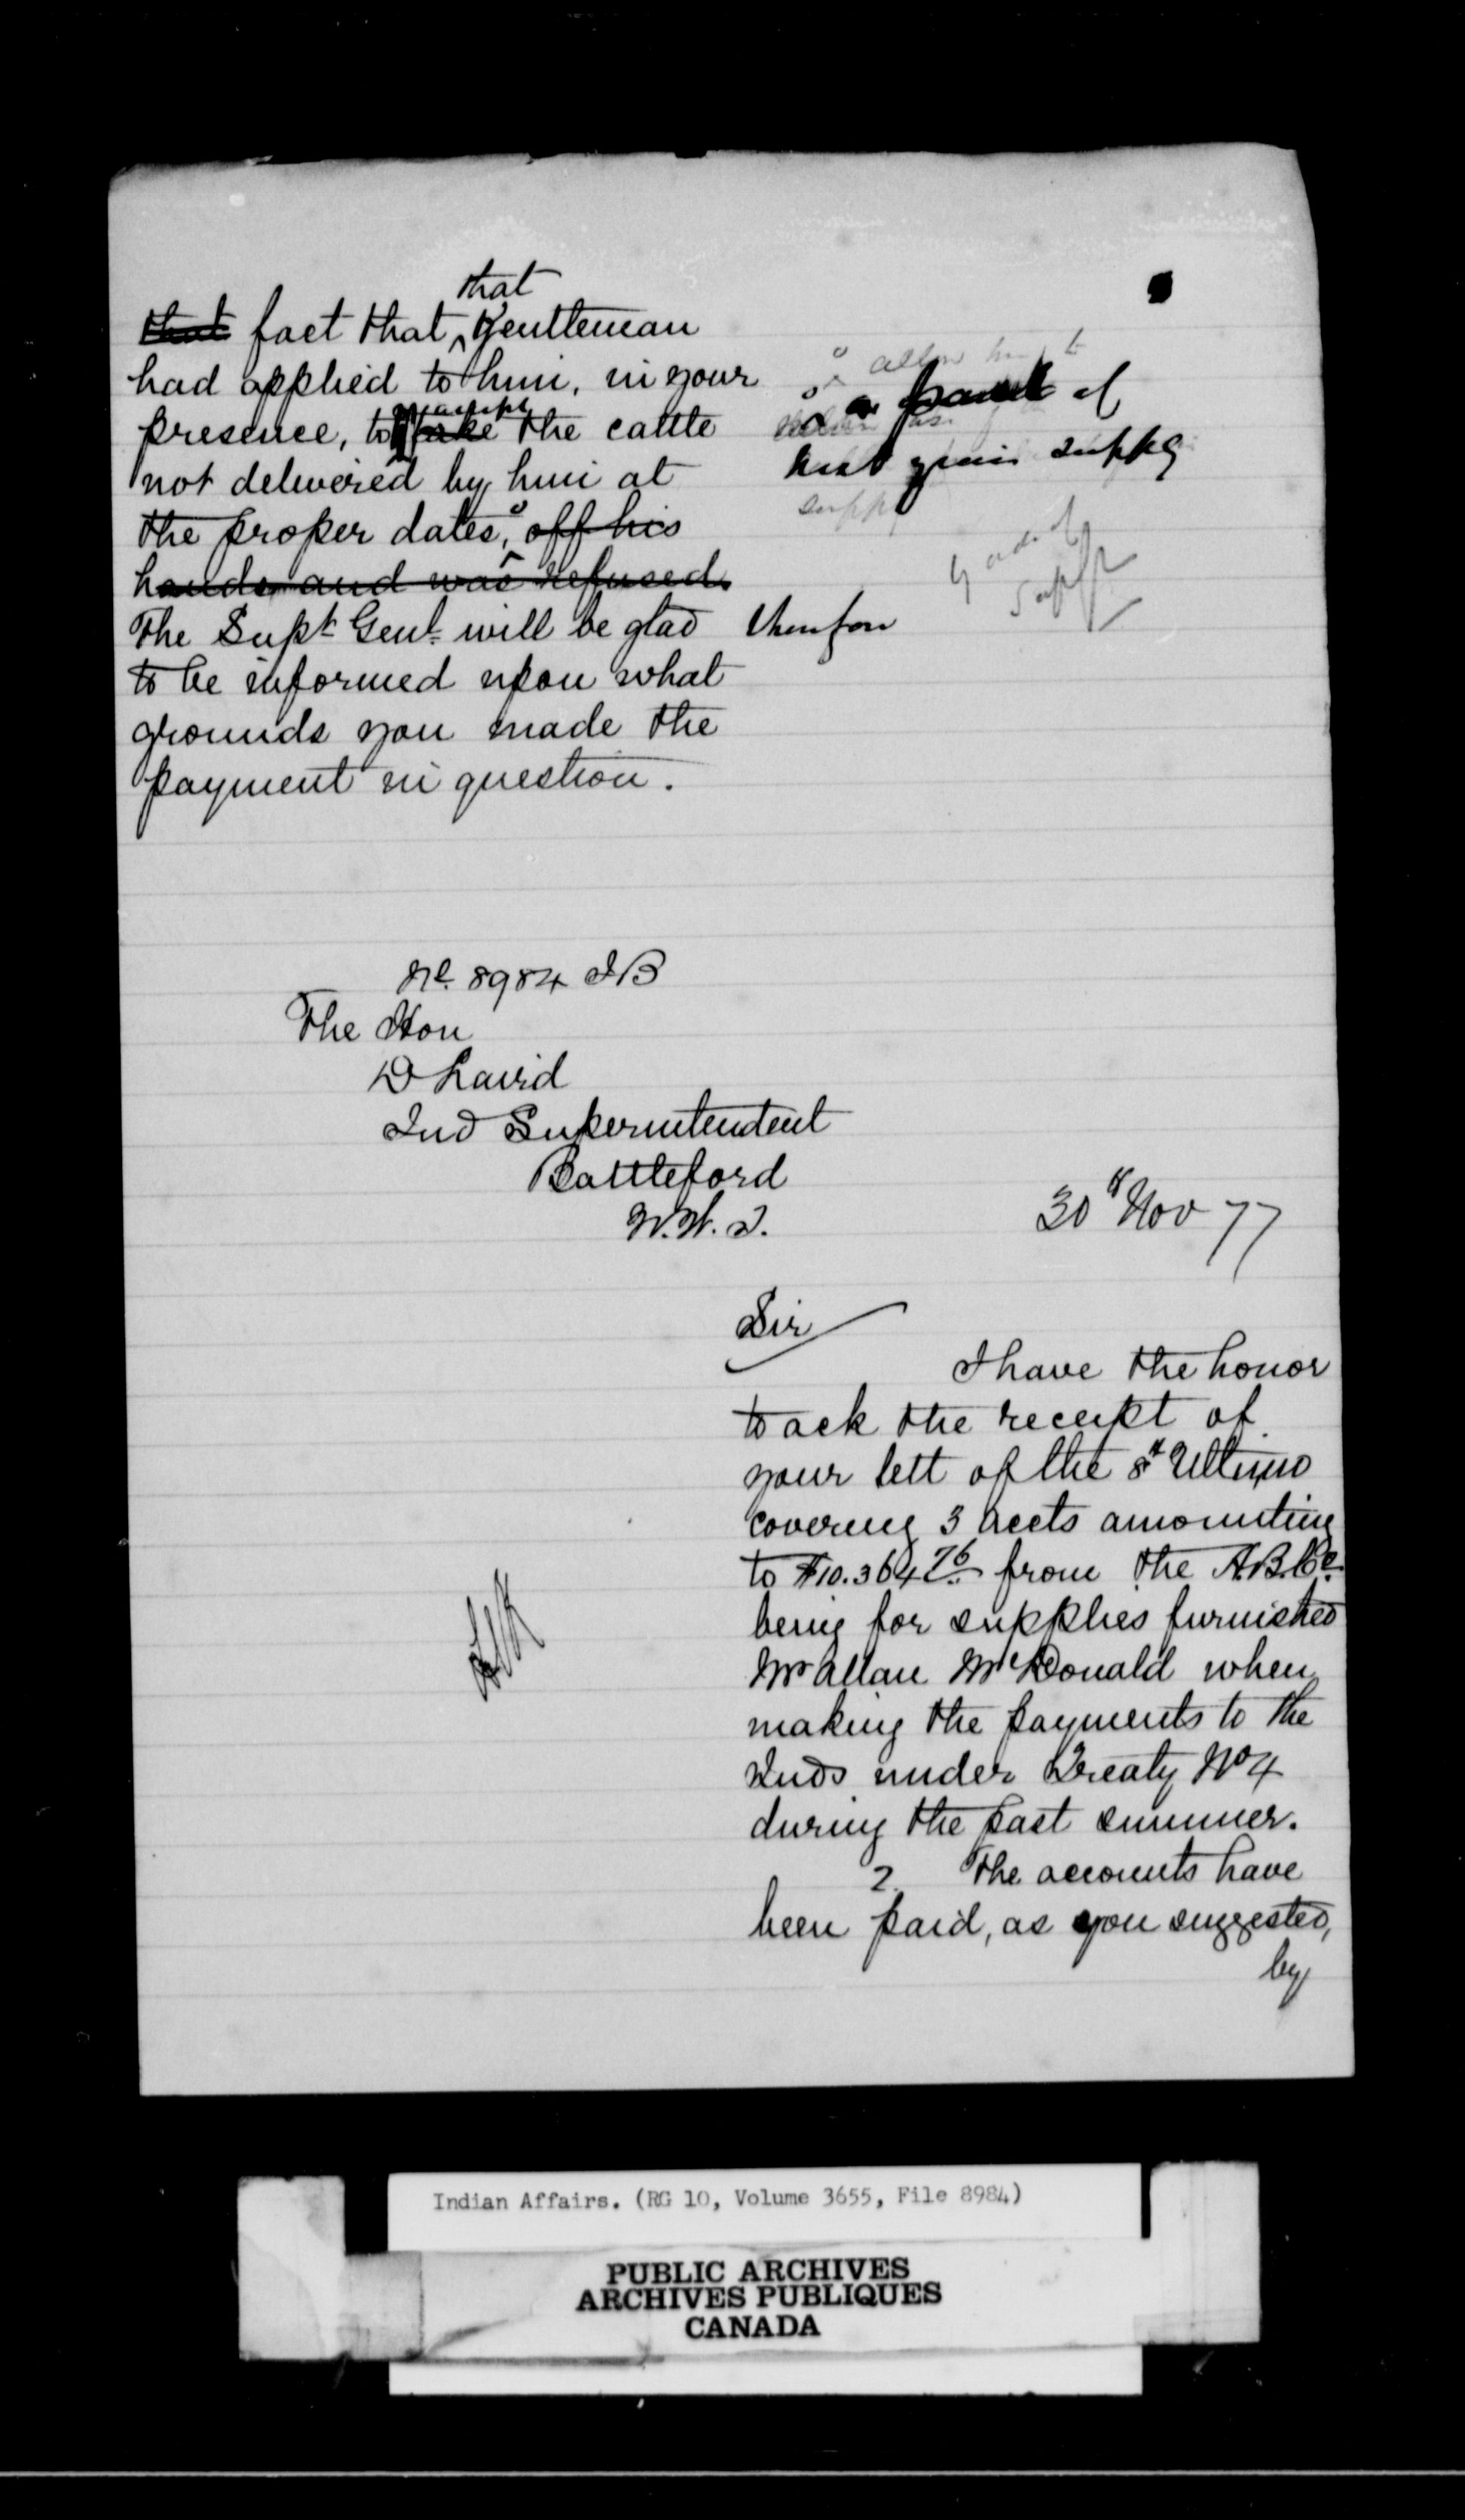 that
that fact that Gentleman
had applied to him, in your
presence, to accept take the cattle
not delivered by him at
the proper dates, off his
hands and was refused.
The Supt. Genl. will be glad
to be informed upon what
grounds you made the
payment in question.
allow
as a part of
next years supply
supply
therefor
No. 8984 I B
The Hon
D Laird
Ind Superintendent
Battleford
N.W.T.
30th Nov 77
Sir
I have the honor
to ack the receipt of
your lett of the 8th Ultimo
covering 3 accts amounting
to $10.364 76 from the H.B.Co.
being for supplies furnished
Mr Allan McDonald when
making the payments to the
Inds under Treaty No 4
during the past summer.
2. The accounts have
been paid, as you suggested,
by
Indian Affairs. (RG 10, Volume 3655, File 8984)
PUBLIC ARCHIVES
ARCHIVES PUBLIQUES
CANADA